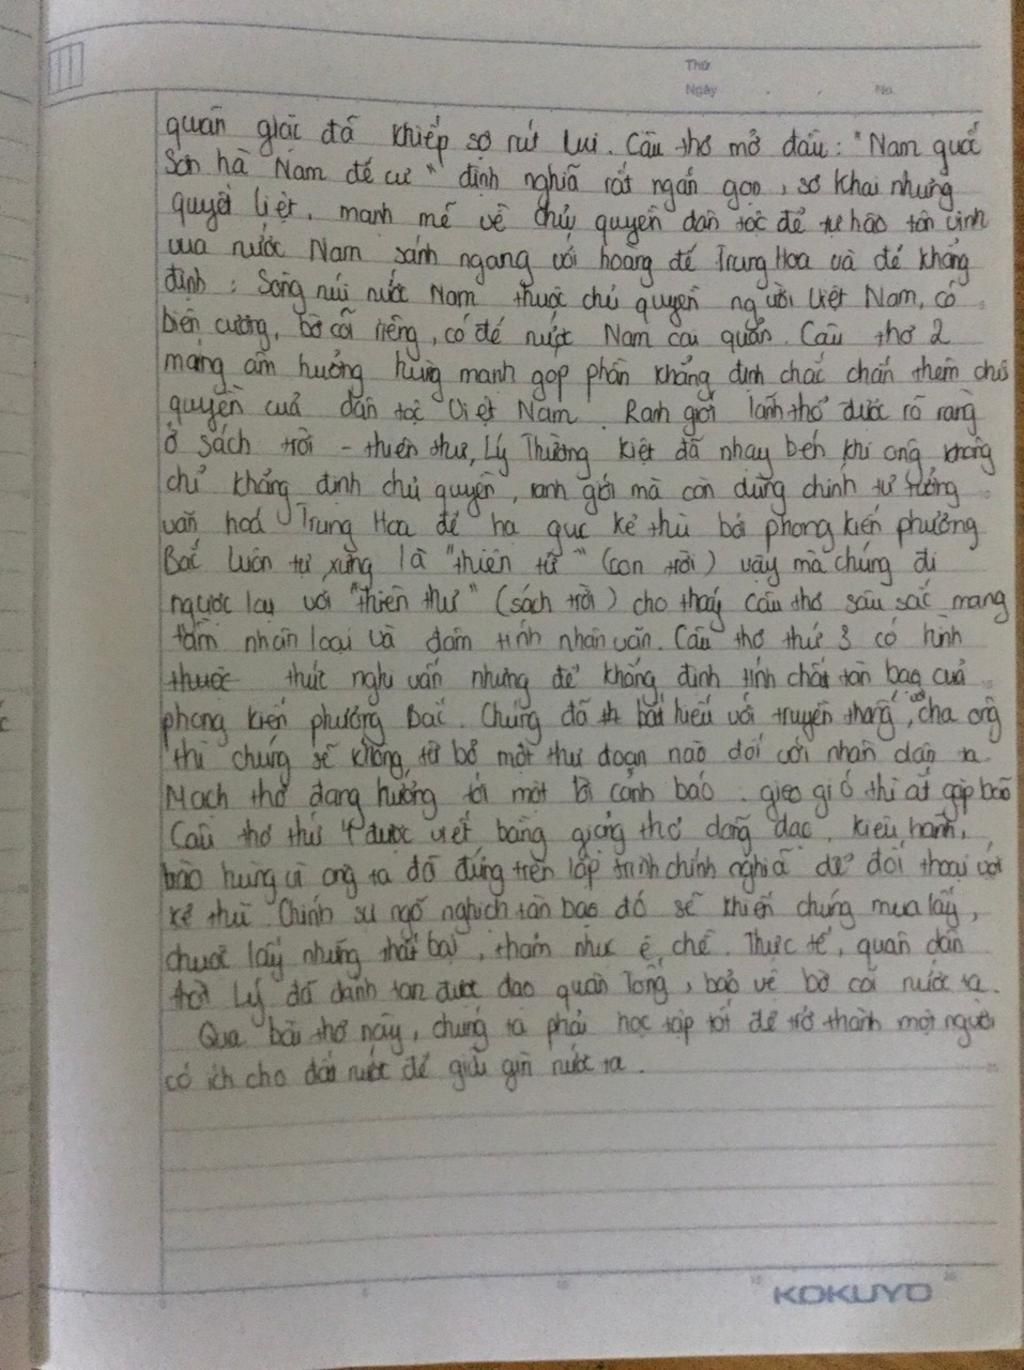 Thứ
Ngày . . No.
quân giặc đã khiếp sợ rút lui. Câu thơ mở đầu: "Nam quốc
Sơn hà Nam đế cư" định nghĩa rất ngắn gọn, sơ khai nhưng
quyết liệt, mạnh mẽ về chủ quyền dân tộc để tự hào tôn vinh
vua nước Nam sánh ngang với hoàng đế Trung Hoa và để khẳng
định: Sông núi nước Nam thuộc chủ quyền người Việt Nam, có
biên cương, bờ cõi riêng, có đế nước Nam cai quản. Câu thơ 2
mang âm hưởng hùng mạnh góp phần khẳng định chắc chắn thêm chủ
quyền của dân tộc Việt Nam. Ranh giới lãnh thổ được rõ ràng
ở sách trời - thiên thư, Lý Thường Kiệt đã nhạy bén khi ông không
chỉ khẳng định chủ quyền, ranh giới mà còn dùng chính tư tưởng
văn hoá Trung Hoa để hạ gục kẻ thù bởi phong kiến phương
Bắc luôn tự xưng là "thiên tử" (con trời) vậy mà chúng đi
ngược lại với "thiên thư" (sách trời) cho thấy câu thơ sâu sắc mang
tầm nhân loại và đậm tính nhân văn. Câu thơ thứ 3 có hình
thước thức nghi vấn nhưng để khẳng định tính chất tàn bạo của
phong kiến phương Bắc. Chúng đã th bất hiếu với truyền thống, cha ông
thì chúng sẽ không từ bỏ một thủ đoạn nào đối với nhân dân ta.
Mạch thơ đang hướng tới một lời cảnh báo. gieo gió thì ắt gặp bão
Câu thơ thứ 4 được viết bằng giọng thơ dõng dạc, kiêu hãnh,
hào hùng vì ông ta đã đứng trên lập trình chính nghĩa để đối thoại với
kẻ thù. Chính sự ngỗ nghịch tàn bạo đó sẽ khiến chúng mua lấy,
chuốc lấy những thất bại, thảm như ê chề. Thực tế, quân dân
thời Lý đã đánh tan được đạo quân Tống, bảo vệ bờ cõi nước ta.
Qua bài thơ này, chúng ta phải học tập tốt để trở thành một người
có ích cho đất nước để giữ gìn nước ta.
KOKUYO